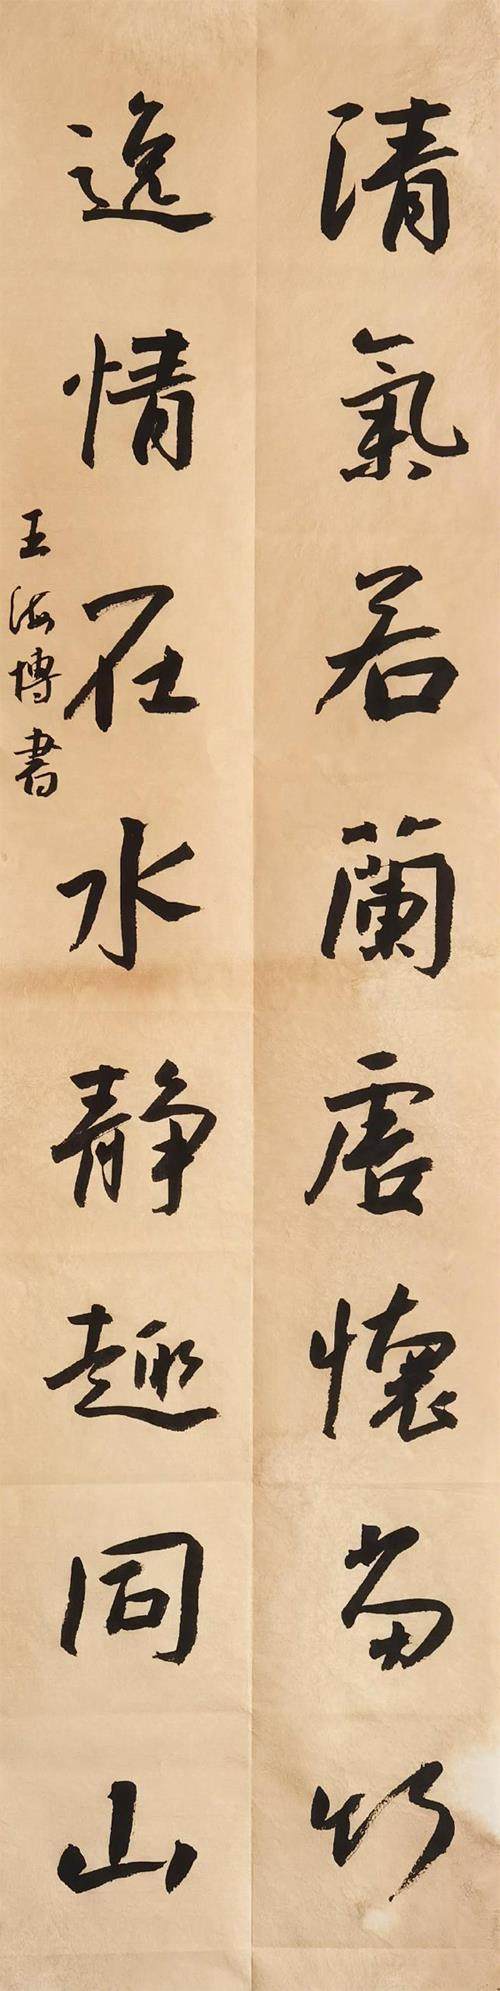 清氣若蘭虛懷當竹
逸情在水靜趣同山
王海博書